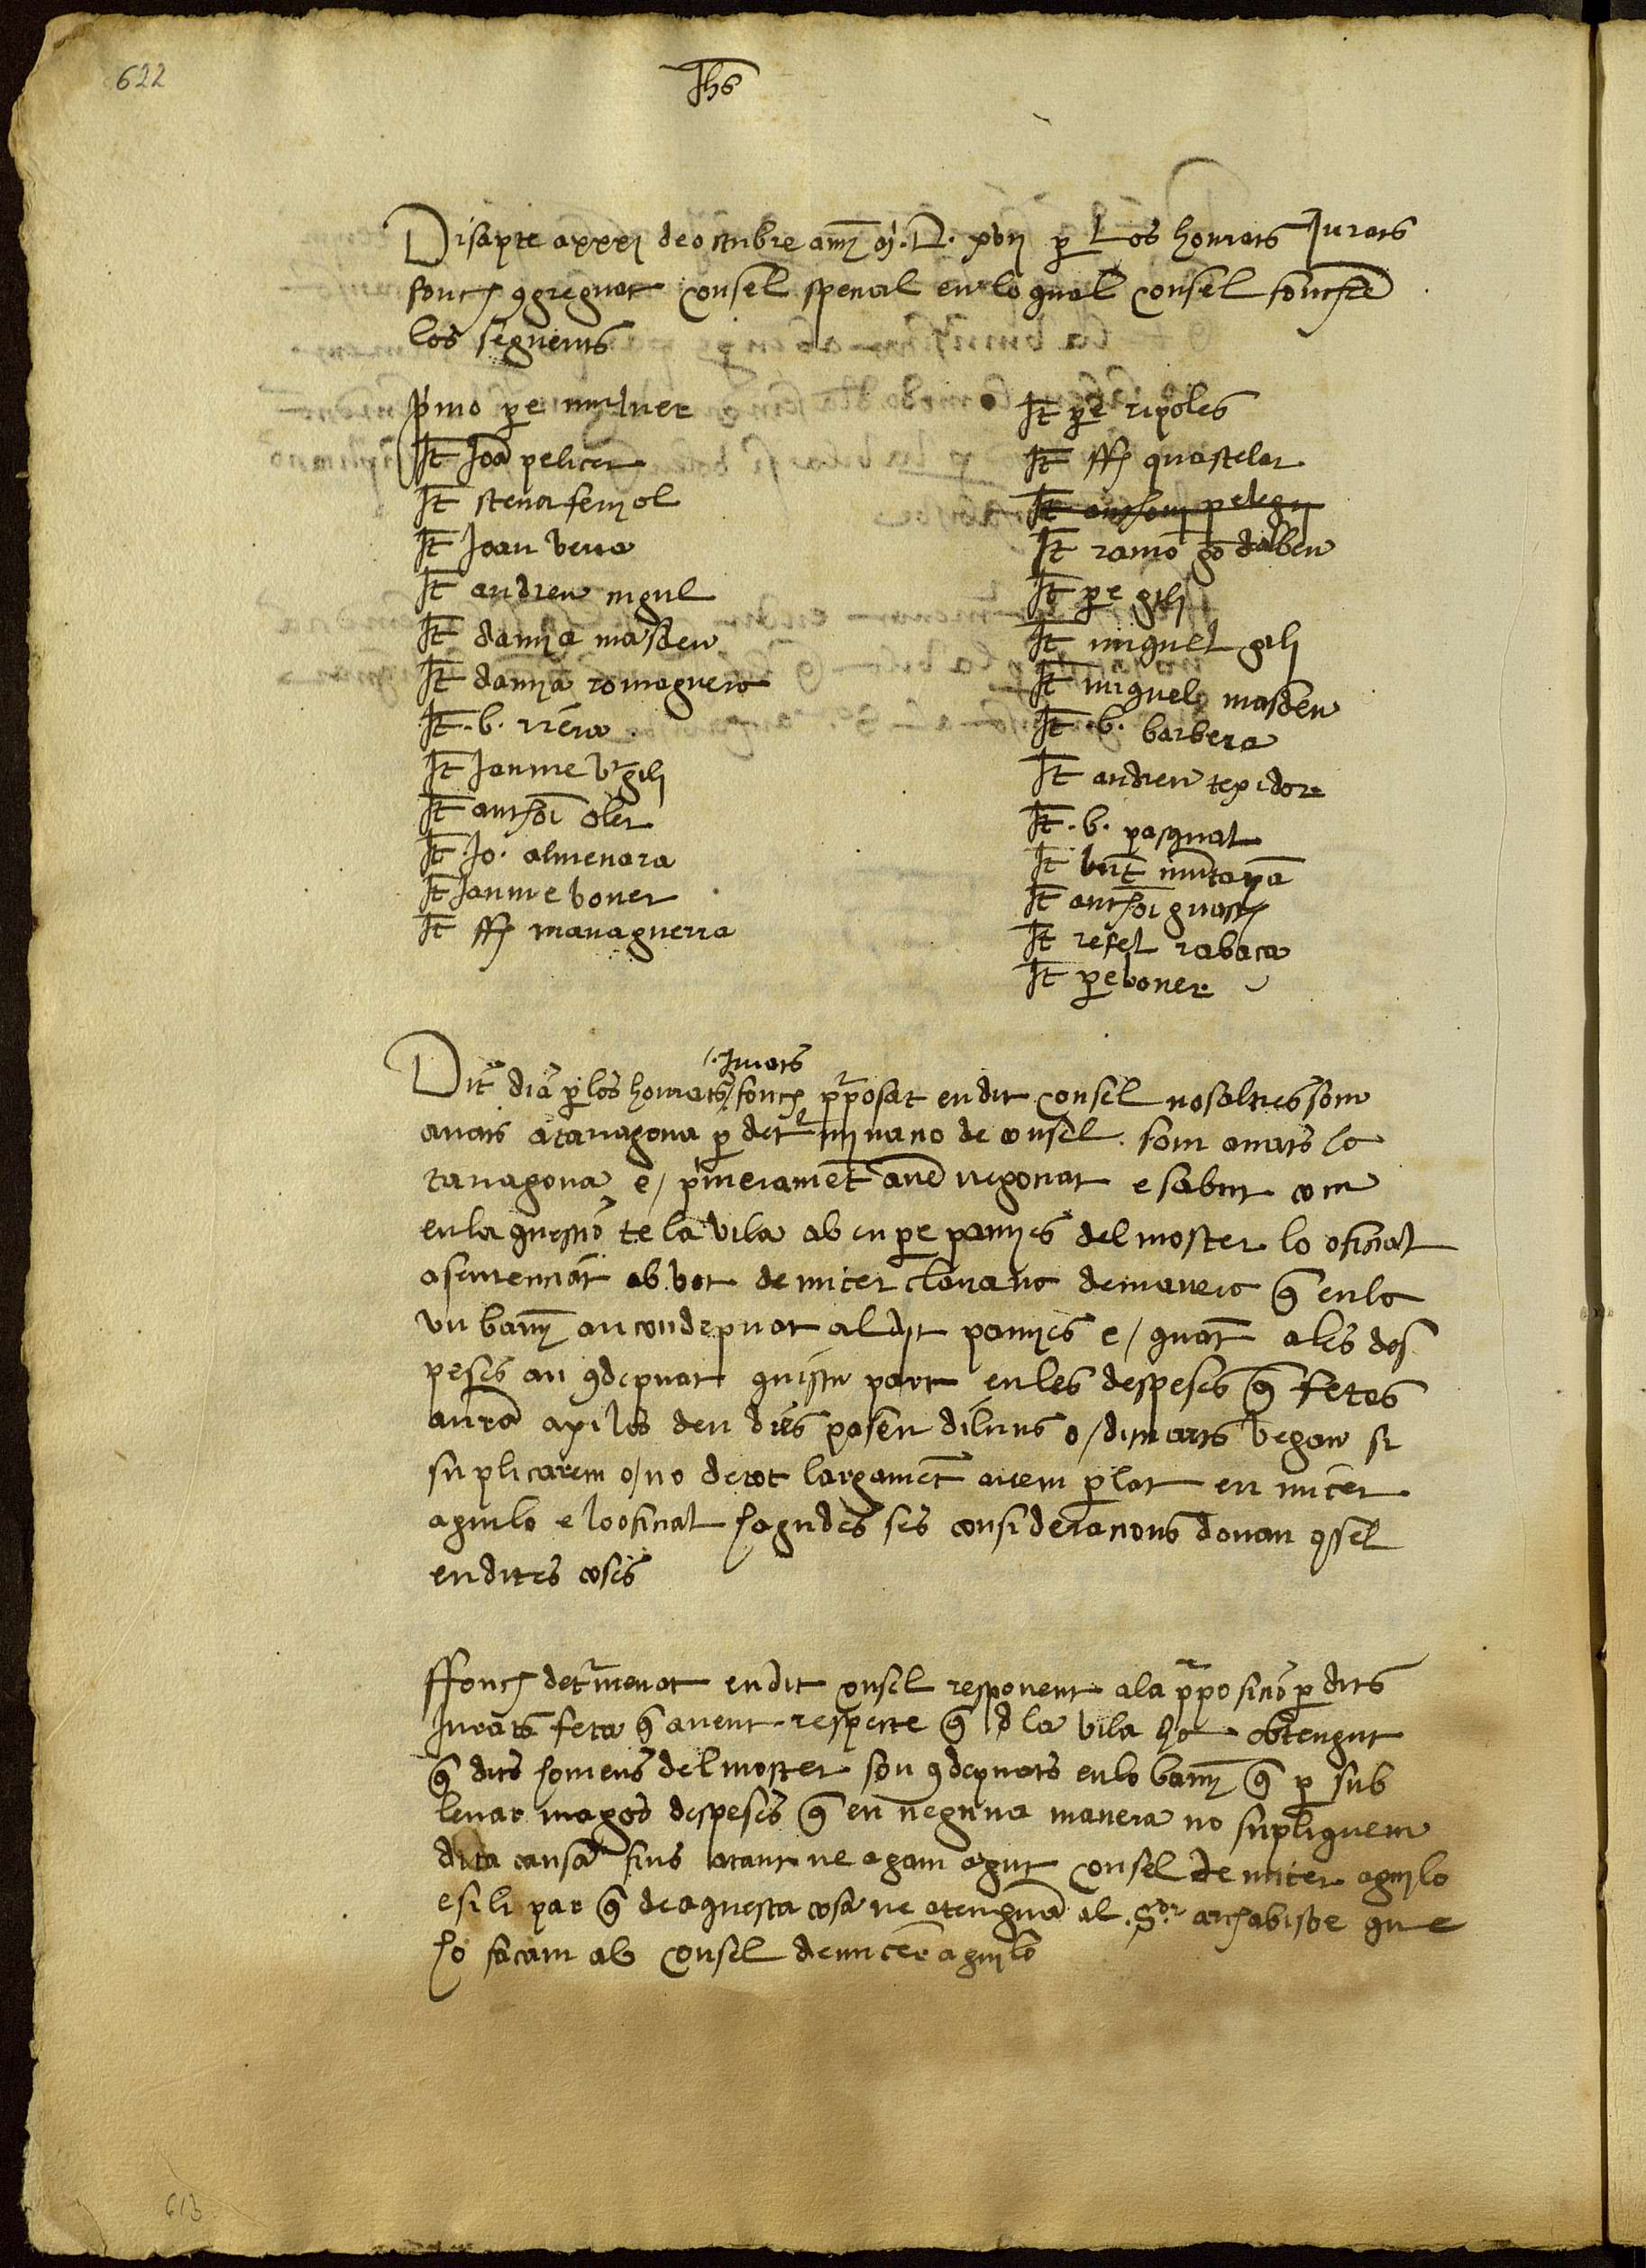 622
Jhs
Disapte a xxxi de octubre any M. D. xvii per los honrats Jurats
fonch congreguat consel special en lo qual consel
los seguents
primo pere muluer
It Joa pelicer
It steva feriol
It Joan verra
It andreu mgul
It damia masdeu
It damia romaguera
It .b. riera
It Jaume virgili
It anthoi oler
It .Jo. almenara
It Jaume boner
It ffr managuerra
It pere ripoles
It ffr guastelar
It anthoni pelegri
It ramo godalbeu
It pere gili
It miguel gili
It miguel masdeu
It .b. barbera
It andreu texidor
It .b. pasqual
It muntaya
It anthoi guasch
It refel rabaca
It pere boner
Dit dia per los honrats Jurats fonch proposat en dit consel nosaltres som
anats a tarragona per determinacio de consel som anats a
tarragona e / primerament avem negociat e sabut com
en la questio te la vila ab en pere pamies del moster lo oficial
a sentenciat ab vot de micer clavano de manera que en lo
un bany an condepnat al dit pamies e / quant a les des
peses an condepnat quiscu part en les despeses que fetes
aura axi los deu dies pasen diluns o / dimarts vegau si
suplicarem o / no de tot largament avem parlat en micer
aguilo e lo oficial hagudes ses consideracions donau consel
en dites coses
ffonch determenat en dit consel responent a la proposicio per dits
Jurats feta que avent respecte que la vila ha obtengut
que dits homens del moster son condepnats en lo bany que per sub
levar magos despeses que en neguna manera no supliquem
dita causa fins atant ne agam agut consel de micer aguilo
e si li par que de aquesta cosa ne atengua al Sor archabisbe que
ho facam ab consel de micer aguilo
613